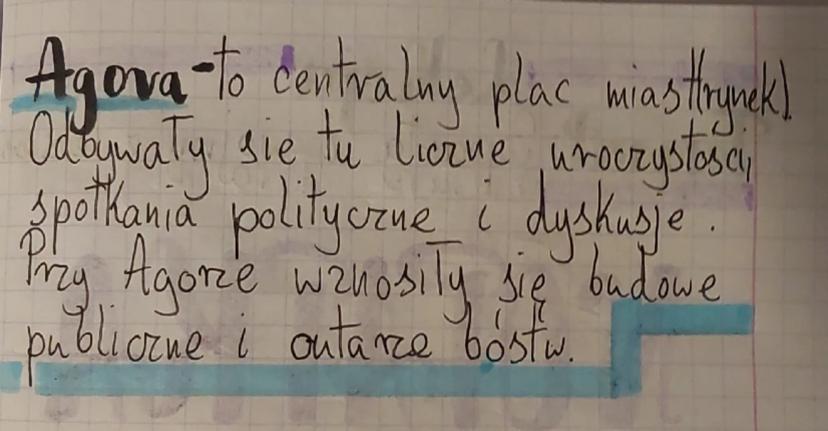 Agora-to centralny plac miast(rynek).
Odbywały sie tu liczne uroczystości,
spotkania polityczne i dyskusje.
Przy Agorze wznosiły się budowe
publiczne i outarze bóstw.